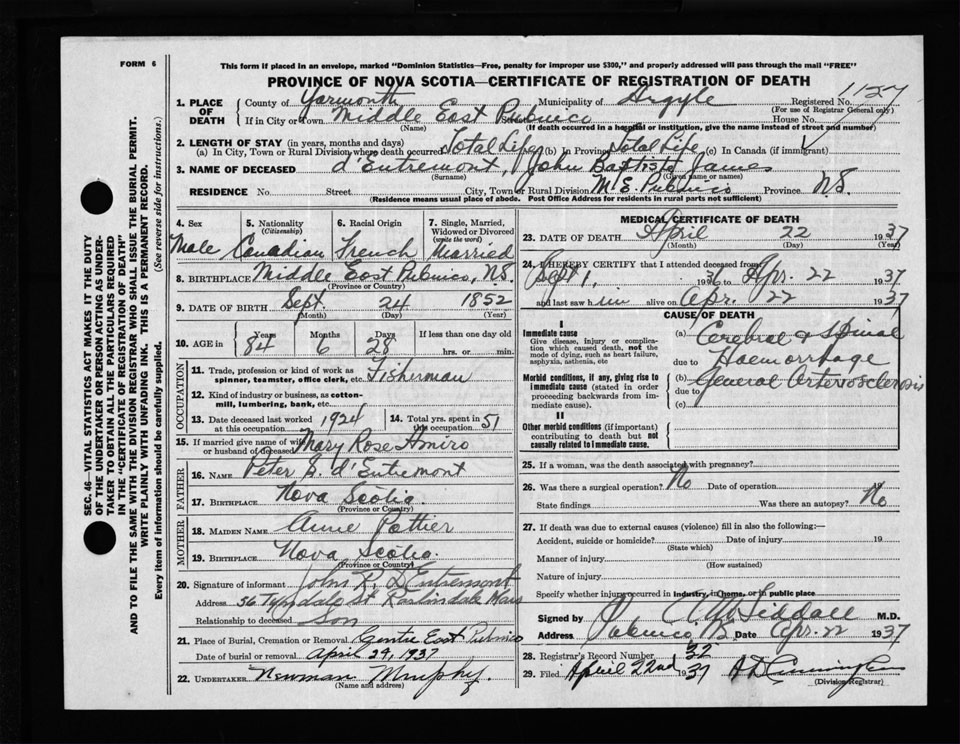 FORM 6
This form if placed in an envelope, marked "Dominion Statistics—Free, penalty for improper use $300," and properly addressed will pass through the mail "FREE"
PROVINCE OF NOVA SCOTIA—CERTIFICATE OF REGISTRATION OF DEATH
1. PLACE OF DEATH { County of Yarmouth Municipality of Argyle Registered No. 1127
(For use of Registrar General only)
If in City or Town Middle East Pubnico Street House No.
(Name) (If death occurred in a hospital or institution, give the name instead of street and number)
2. LENGTH OF STAY (in years, months and days)
(a) In City, Town or Rural Division where death occurred Total Life (b) In Province Total Life (c) In Canada (if immigrant)
3. NAME OF DECEASED d'Entremont, John Baptiste James
(Surname) (Given name or names)
RESIDENCE No. Street City, Town or Rural Division M. E. Pubnico Province N.S.
(Residence means usual place of abode. Post Office Address for residents in rural parts not sufficient)
4. Sex Male
5. Nationality (Citizenship) Canadian
6. Racial Origin French
7. Single, Married, Widowed or Divorced (write the word) Married
8. BIRTHPLACE Middle East Pubnico, N.S.
(Province or Country)
9. DATE OF BIRTH Sept. 24 1852
(Month) (Day) (Year)
10. AGE in Years 84 Months 6 Days 28 If less than one day old hrs. or min.
OCCUPATION
11. Trade, profession or kind of work as spinner, teamster, office clerk, etc. Fisherman
12. Kind of industry or business, as cotton-mill, lumbering, bank, etc.
13. Date deceased last worked at this occupation 1924
14. Total yrs. spent in this occupation 51
15. If married give name of wife or husband of deceased Mary Rose Amiro
FATHER
16. NAME Peter S. d'Entremont
17. BIRTHPLACE Nova Scotia
(Province or Country)
MOTHER
18. MAIDEN NAME Anne Pottier
19. BIRTHPLACE Nova Scotia
(Province or Country)
20. Signature of informant John R. D'Entremont
Address 56 Tyndale St Roslindale Mass
Relationship to deceased Son
21. Place of Burial, Cremation or Removal Centre East Pubnico
Date of burial or removal April 24, 1937
22. UNDERTAKER Newman Murphy
(Name and address)
MEDICAL CERTIFICATE OF DEATH
23. DATE OF DEATH April 22 1937
(Month) (Day) (Year)
24. I HEREBY CERTIFY that I attended deceased from
Sept 1, 1936 to Apr. 22 1937
and last saw him alive on Apr. 22 1937
CAUSE OF DEATH
I
Immediate cause
Give disease, injury or complication which caused death, not the mode of dying, such as heart failure, asphyxia, asthenia, etc
(a) Cerebral & spinal
due to Haemorrhage
Morbid conditions, if any, giving rise to immediate cause (stated in order proceeding backwards from immediate cause).
(b) General Arteriosclerosis
due to
(c)
II
Other morbid conditions (if important) contributing to death but not causally related to immediate cause.
25. If a woman, was the death associated with pregnancy?
26. Was there a surgical operation? No Date of operation
State findings Was there an autopsy? No
27. If death was due to external causes (violence) fill in also the following:—
Accident, suicide or homicide? Date of injury 19
(State which)
Manner of injury
(How sustained)
Nature of injury
Specify whether injury occurred in industry, in home, or in public place
Signed by Siddall M.D.
Address Pubnico Date Apr. 22 1937
28. Registrar's Record Number 32
29. Filed April 22nd 1937
(Division Registrar)
SEC. 46—VITAL STATISTICS ACT MAKES IT THE DUTY OF THE UNDERTAKER OR PERSON ACTING AS UNDERTAKER TO OBTAIN ALL THE PARTICULARS REQUIRED IN THE "CERTIFICATE OF REGISTRATION OF DEATH" AND TO FILE THE SAME WITH THE DIVISION REGISTRAR WHO SHALL ISSUE THE BURIAL PERMIT.
WRITE PLAINLY WITH UNFADING INK. THIS IS A PERMANENT RECORD.
Every item of information should be carefully supplied. (See reverse side for instructions.)